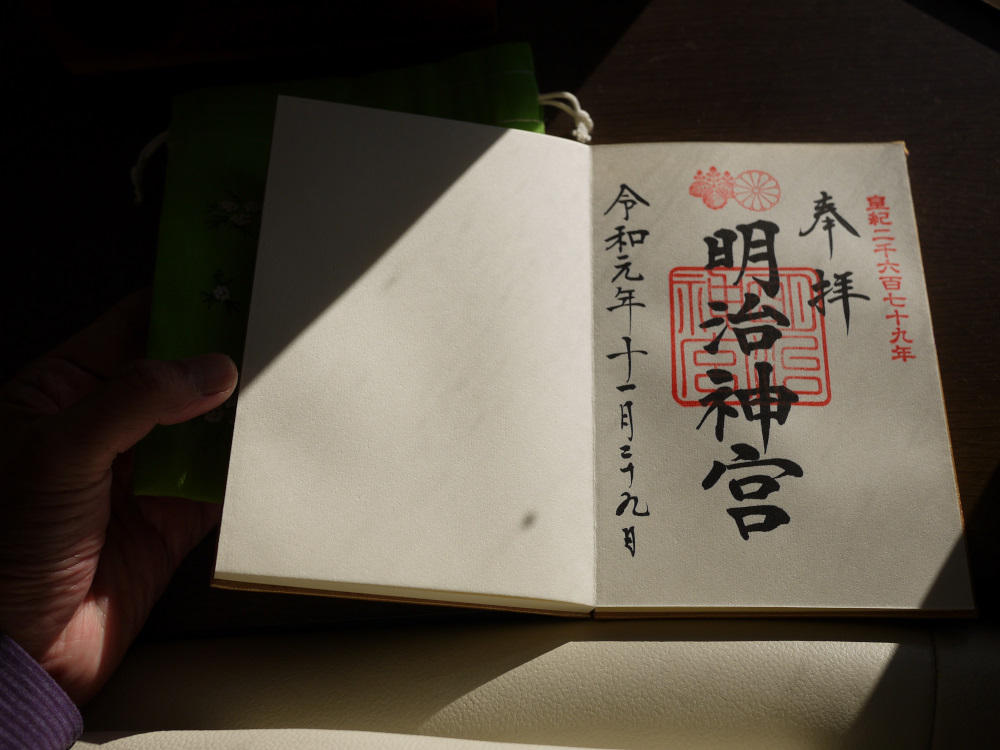 皇紀二千六百七十九年
奉拝
明治神宮
明治神宮
令和元年十一月二十九日